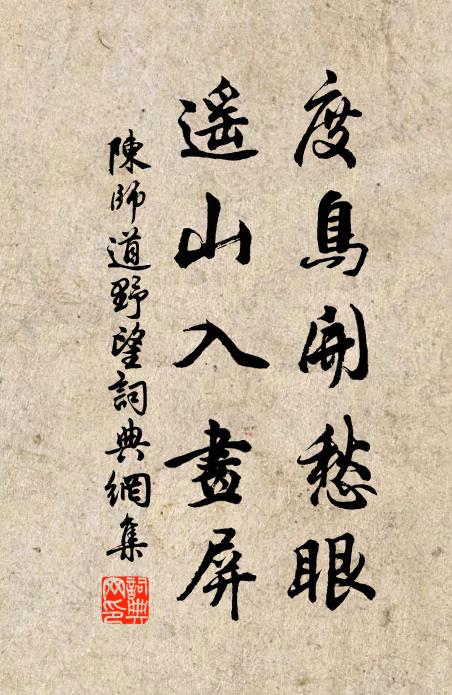 度鳥開愁眼
遥山入畫屏
陳師道野望詞典網集
詞典網印